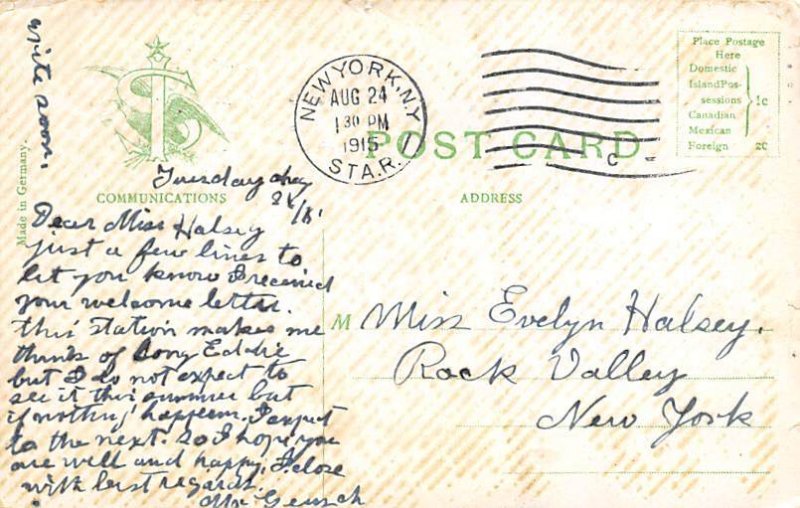 write soon.
Made in Germany.
COMMUNICATIONS
NEW YORK, N.Y.
AUG 24
1 30 PM
1915
STA. R.
POST CARD
Place Postage
Here
Domestic
Island Pos-
sessions
Canadian
Mexican
1c
Foreign 2c
ADDRESS
Tuesday Aug
24/15
Dear Miss Halsey
just a few lines to
let you know I received
your welcome letter.
this station makes me
think of Cony Eddie
but I do not expect to
see it this summer but
if nothing happeem. I expect
to the next. So I hope you
are well and happy. I close
with best regards.
Mr
M Miss Evelyn Halsey.
Rock Valley
New York